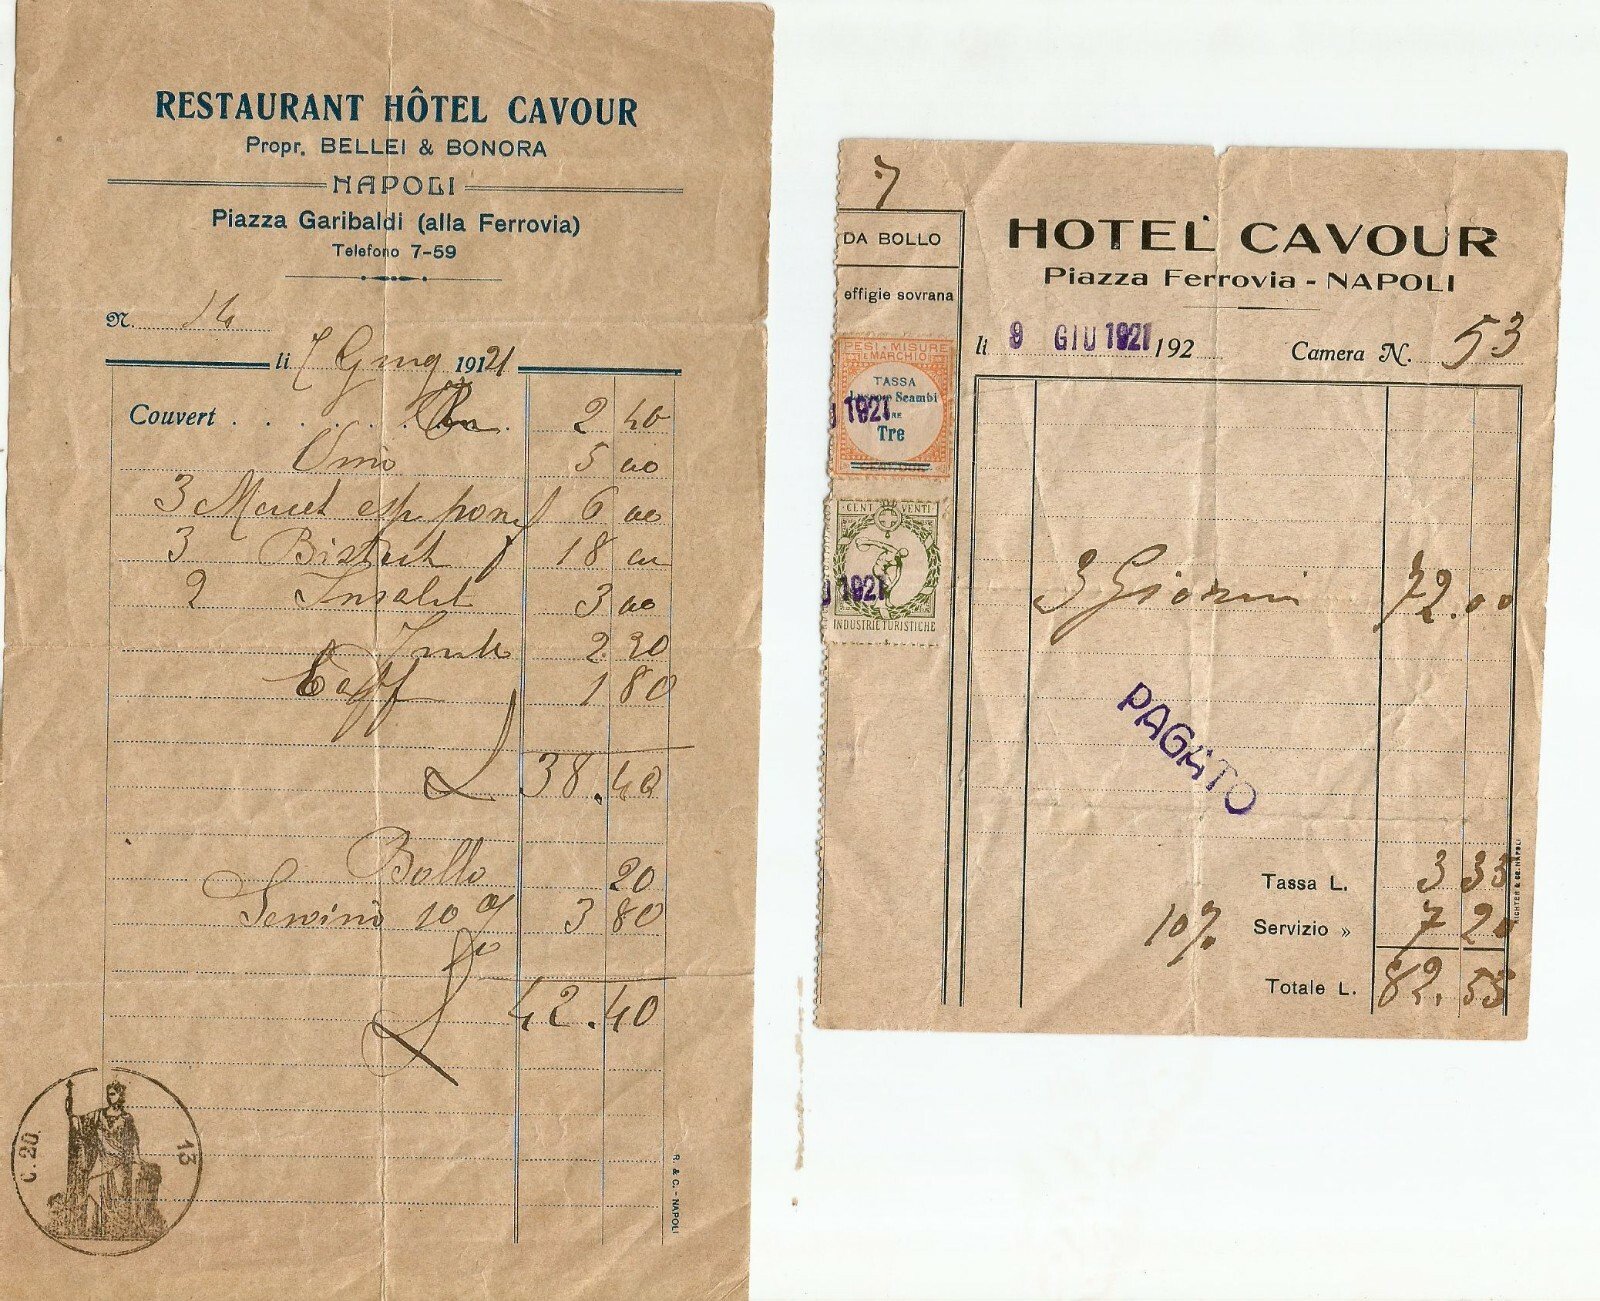 RESTAURANT HÔTEL CAVOUR
Propr. BELLEI & BONORA
NAPOLI
Piazza Garibaldi (alla Ferrovia)
Telefono 7-59
N. 14
li 7 Giug 1921
Couvert 2 40
Vino 5 00
3 6 00
3 Bistect 18 00
2 Insalat 3 00
2 20
Caff 1 80
L 38.40
Bollo 20
Servizio 10 % 3 80
L 42.40
C. 20.
13
R. & C. - NAPOLI
7
DA BOLLO
effigie sovrana
PESI E MISURE
E MARCHIO
TASSA
Lusso e Scambi
LIRE
Tre
1921
CENT VENTI
9 1921
INDUSTRIE TURISTICHE
HOTEL CAVOUR
Piazza Ferrovia - NAPOLI
li 9 GIU 1921 192
Camera N. 53
3 Giorni 72.00
PAGATO
Tassa L. 3 35
10% Servizio » 7 20
Totale L. 82.55
RICHTER & CO. NAPOLI